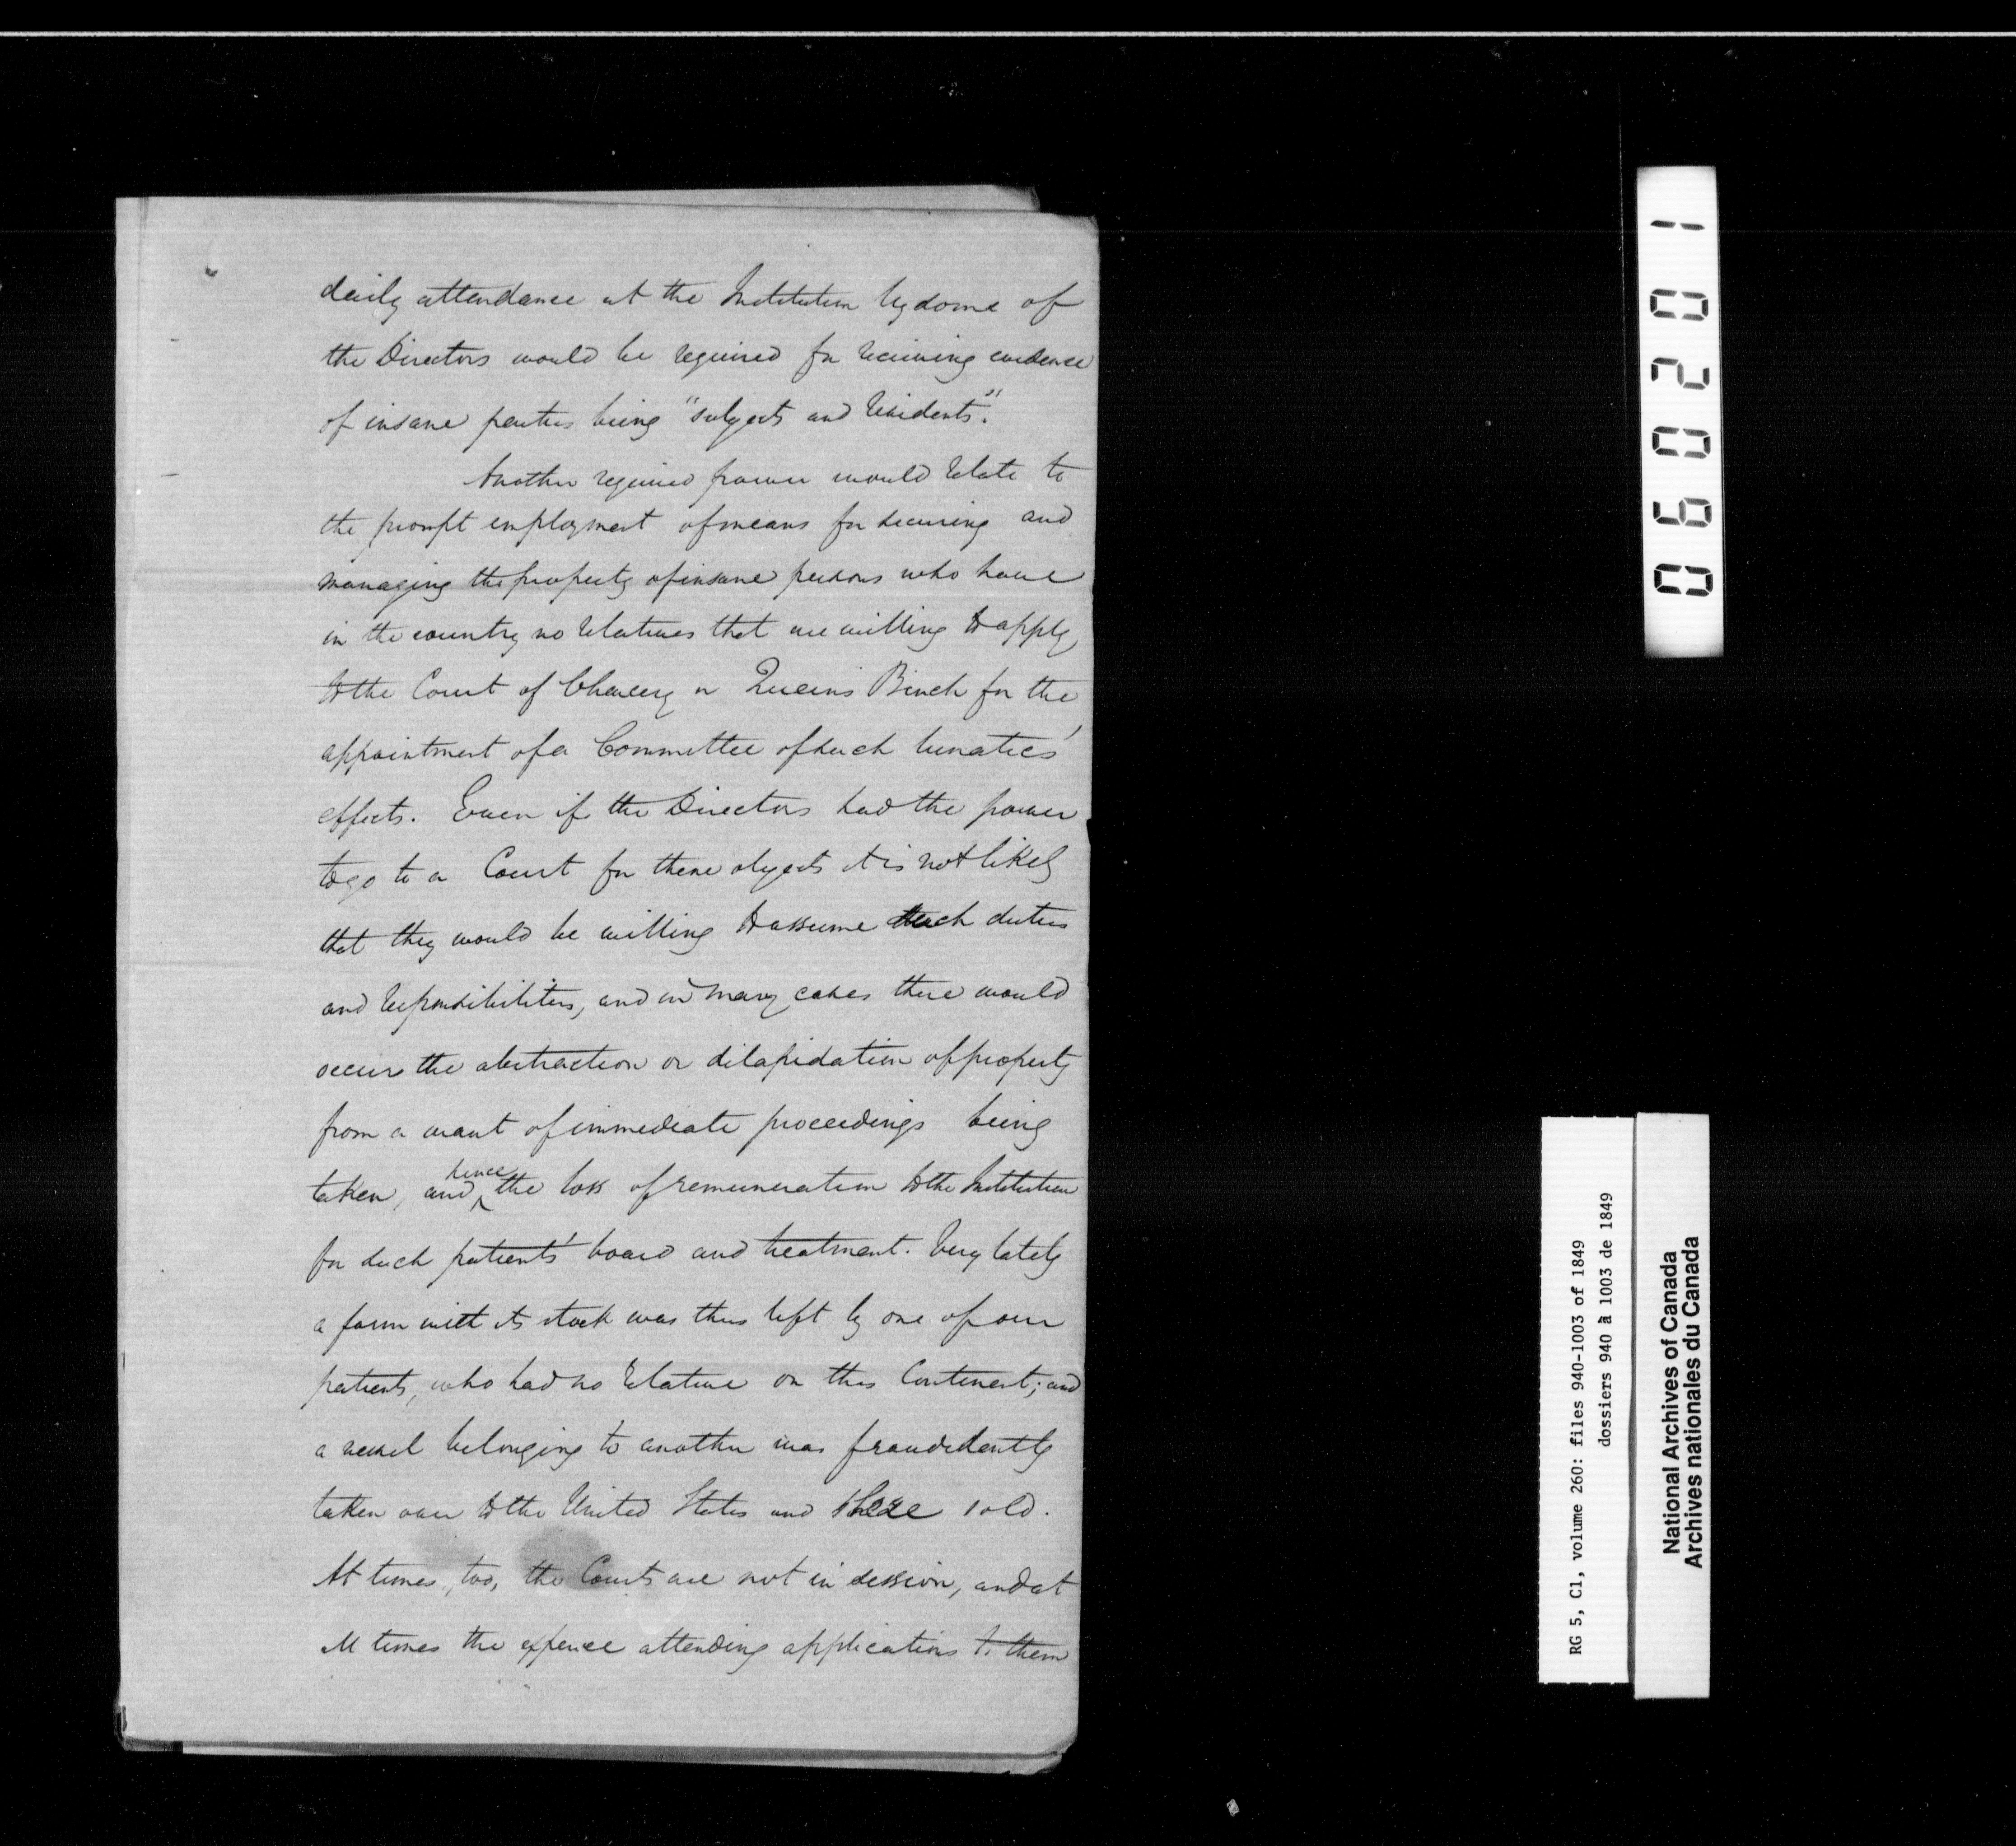 daily attendance at the Institution by some of
the Directors would be required for receiving evidence
of insane parties being "subjects and residents".
Another required power would relate to
the prompt employment of means for securing and
managing the property of insane persons who have
in the country no relatives that are willing to apply
to the Court of Chancery or Queen's Bench for the
appointment of a Committee of such lunatics'
effects. Even if the Directors had the power
to go to a Court for these objects it is not likely
that they would be willing to assume such duties
and responsibilities, and in many cases there would
occur the abstraction or dilapidation of property
from a want of immediate proceedings being
taken, and hence the loss of remuneration to the Institution
for such patients' board and treatment. Very lately
a farm with its stock was thus left by one of our
patients, who had no relative on this Continent; and
a vessel belonging to another was fraudulently
taken over to the United States and there sold.
At times, too, the Courts are not in session, and at
all times the expence attending applications to them
060201
RG 5, C1, volume 260: files 940-1003 of 1849
dossiers 940 à 1003 de 1849
National Archives of Canada
Archives nationales du Canada